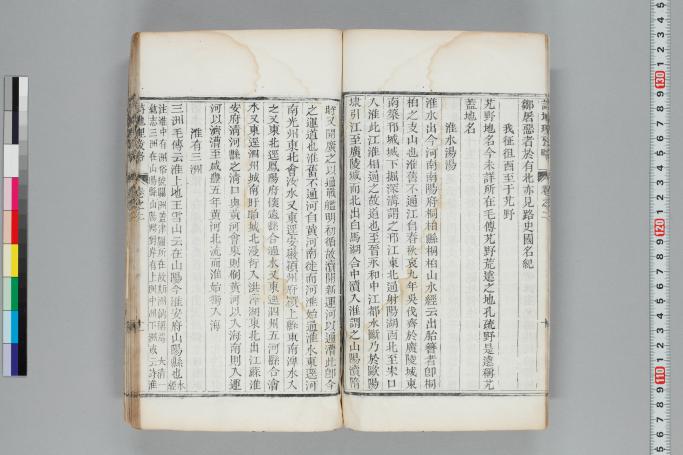 鄒屠惡者於有北亦見路史國名紀
我征徂西至于艽野
艽野地名今未詳所在毛傳艽野荒遠之地孔疏野是遠稱艽
蓋地名
淮水湯湯
淮水出今河南南陽府桐柏縣桐柏山水經云出胎簪者卽桐
柏之支山也淮舊不通河江自春秋哀九年吳伐齊於廣陵城東
南築邗城城下掘深溝謂之邗江東北通射陽湖西北至末口
入淮此江淮相通之故道也至晉永和中江都水斷乃於歐陽
埭引江至廣陵城而北出白馬湖合中瀆入淮謂之山陽瀆隋
時又開廣之以通戰艦明初循故瀆開新運河以通漕此卽今
之運道也淮舊不通河自黃河南徙而河淮始通淮水東逕河
南光州東北會汝水又東逕安徽潁州府潁上縣東南潁水入
之又東北逕鳳陽府懷遠縣合過水又東逕泗州五河縣合澮
水又東逕泗州城南盱眙城北漫衍入洪澤湖東北出江蘇淮
安府清河縣之清口與黃河會東則刷黃河以入海南則入運
河以濟漕至咸豐五年黃河北流而淮始獨入海
淮有三洲
三洲毛傳云淮上地王雪山云在山陽今淮安府山陽縣也